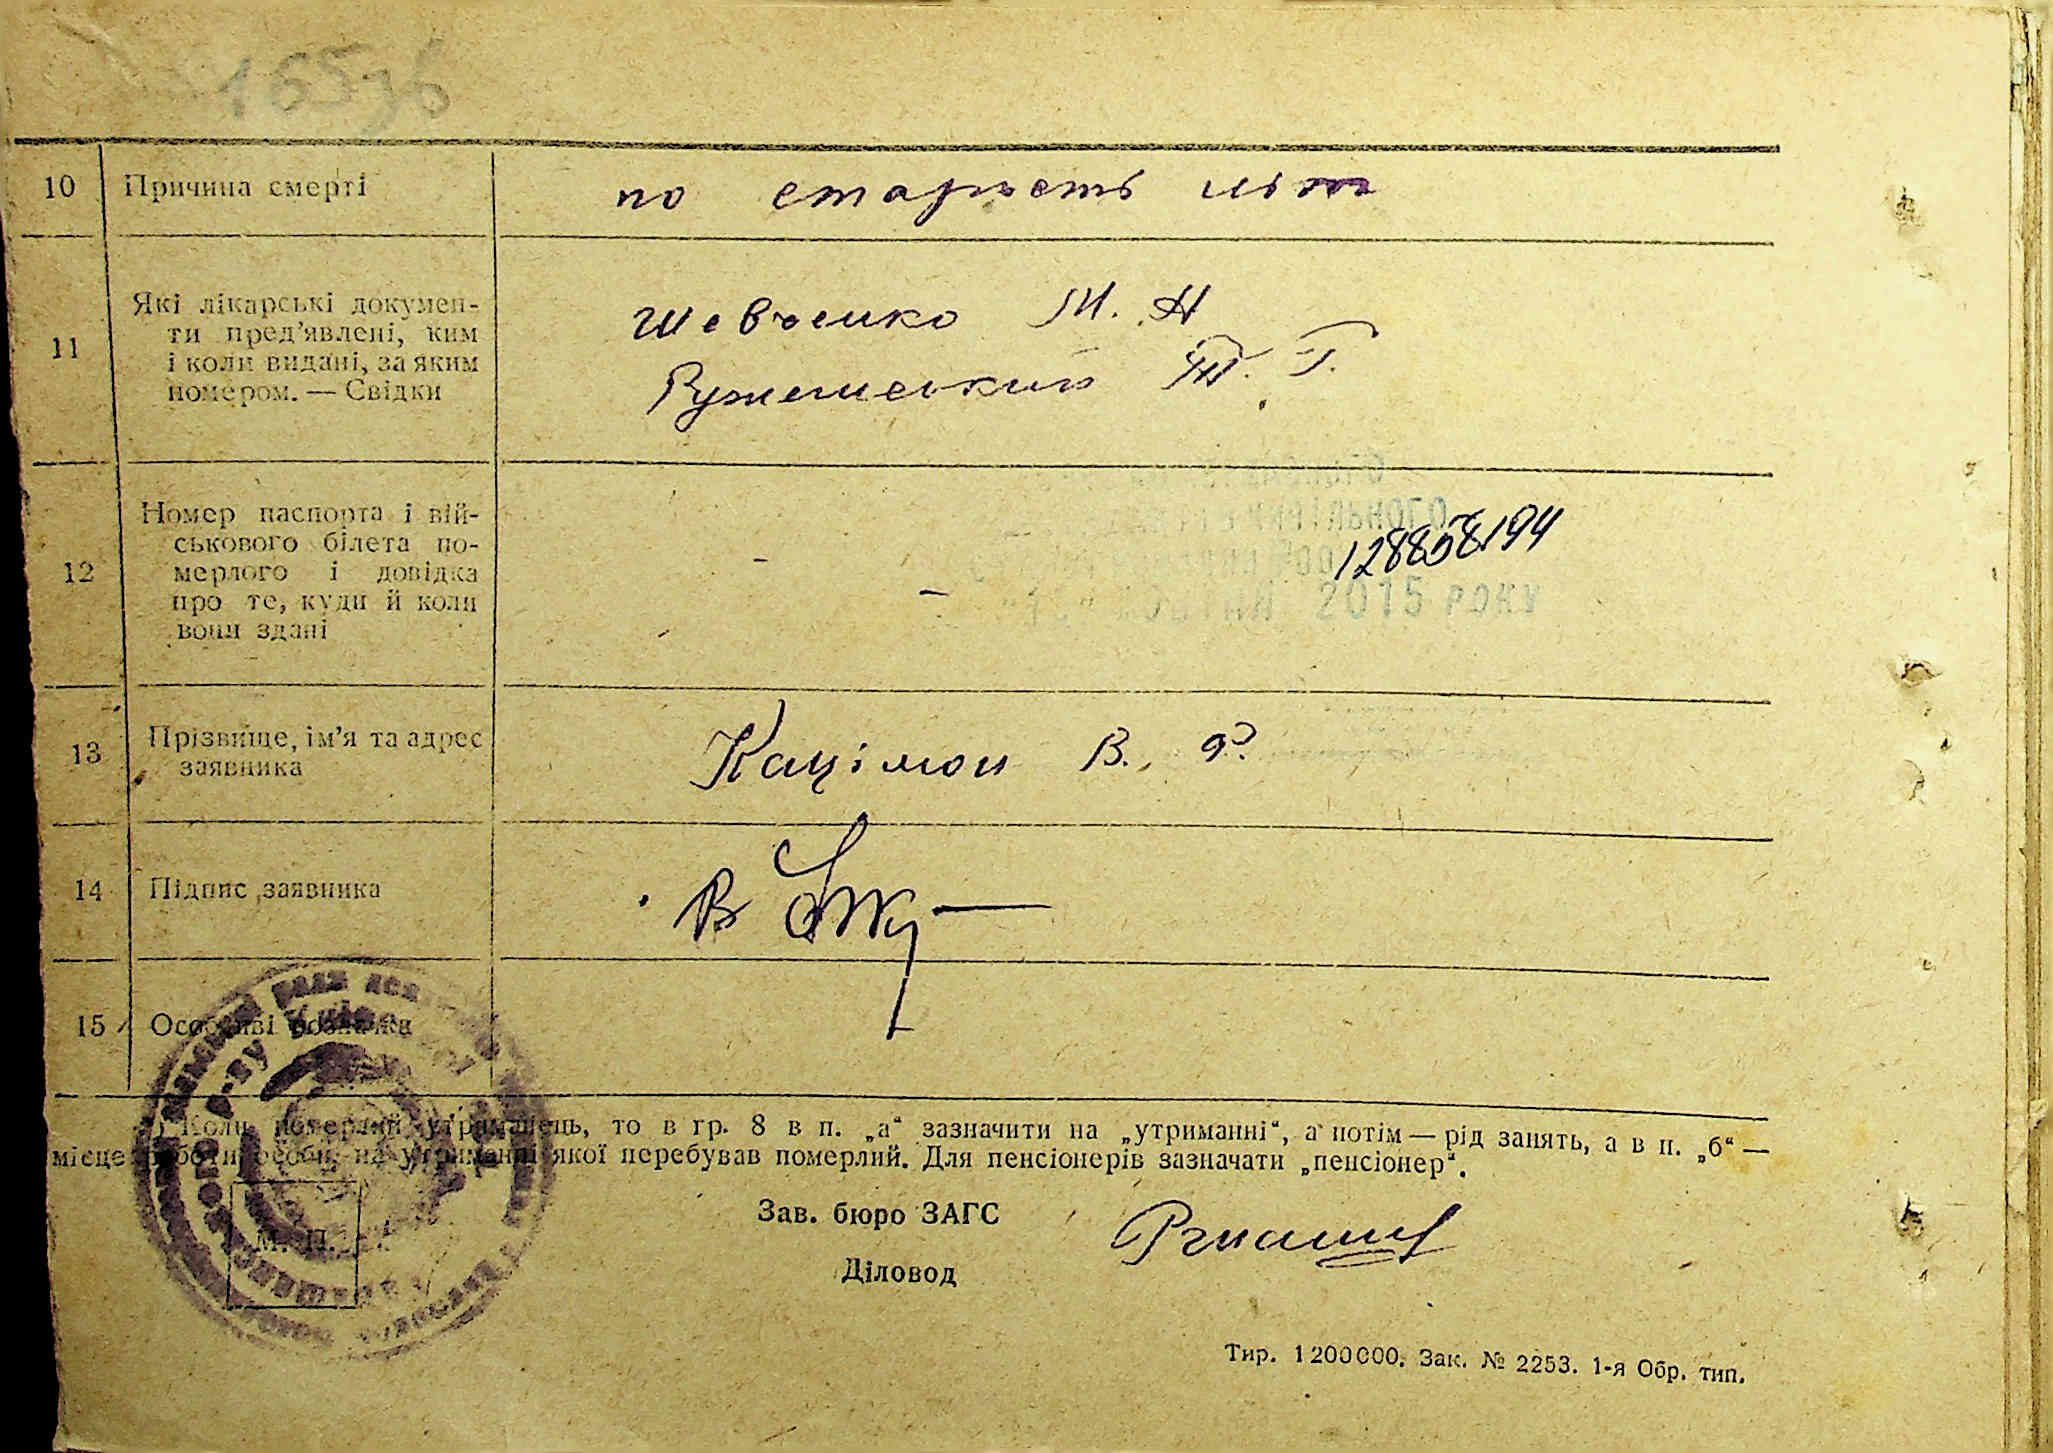 10 Причина смерті
по старость літ
11 Які лікарські докумен-
ти пред'явлені, ким
і коли видані, за яким
номером. — Свідки
Шевченко М. Н
Ружемський Т. Г.
12 Номер паспорта і вій-
ськового білета по-
мерлого і довідка
про те, куди й коли
вони здані
- -
2015 РОКУ
13 Прізвище, ім'я та адрес
заявника
Кацімон В. Ф.
14 Підпис заявника
В
15 Особливі
Коли померлий утриманець, то в гр. 8 в п. „а“ зазначити на „утриманні“, а потім — рід занять, а в п. „б“ —
місце роботи особи, на утриманні якої перебував померлий. Для пенсіонерів зазначати „пенсіонер“.
Зав. бюро ЗАГС
Діловод
М. П.
Тир. 1200000. Зак. № 2253. 1-я Обр. тип.